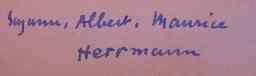 Suzann, Albert, Maurice
Herrmann